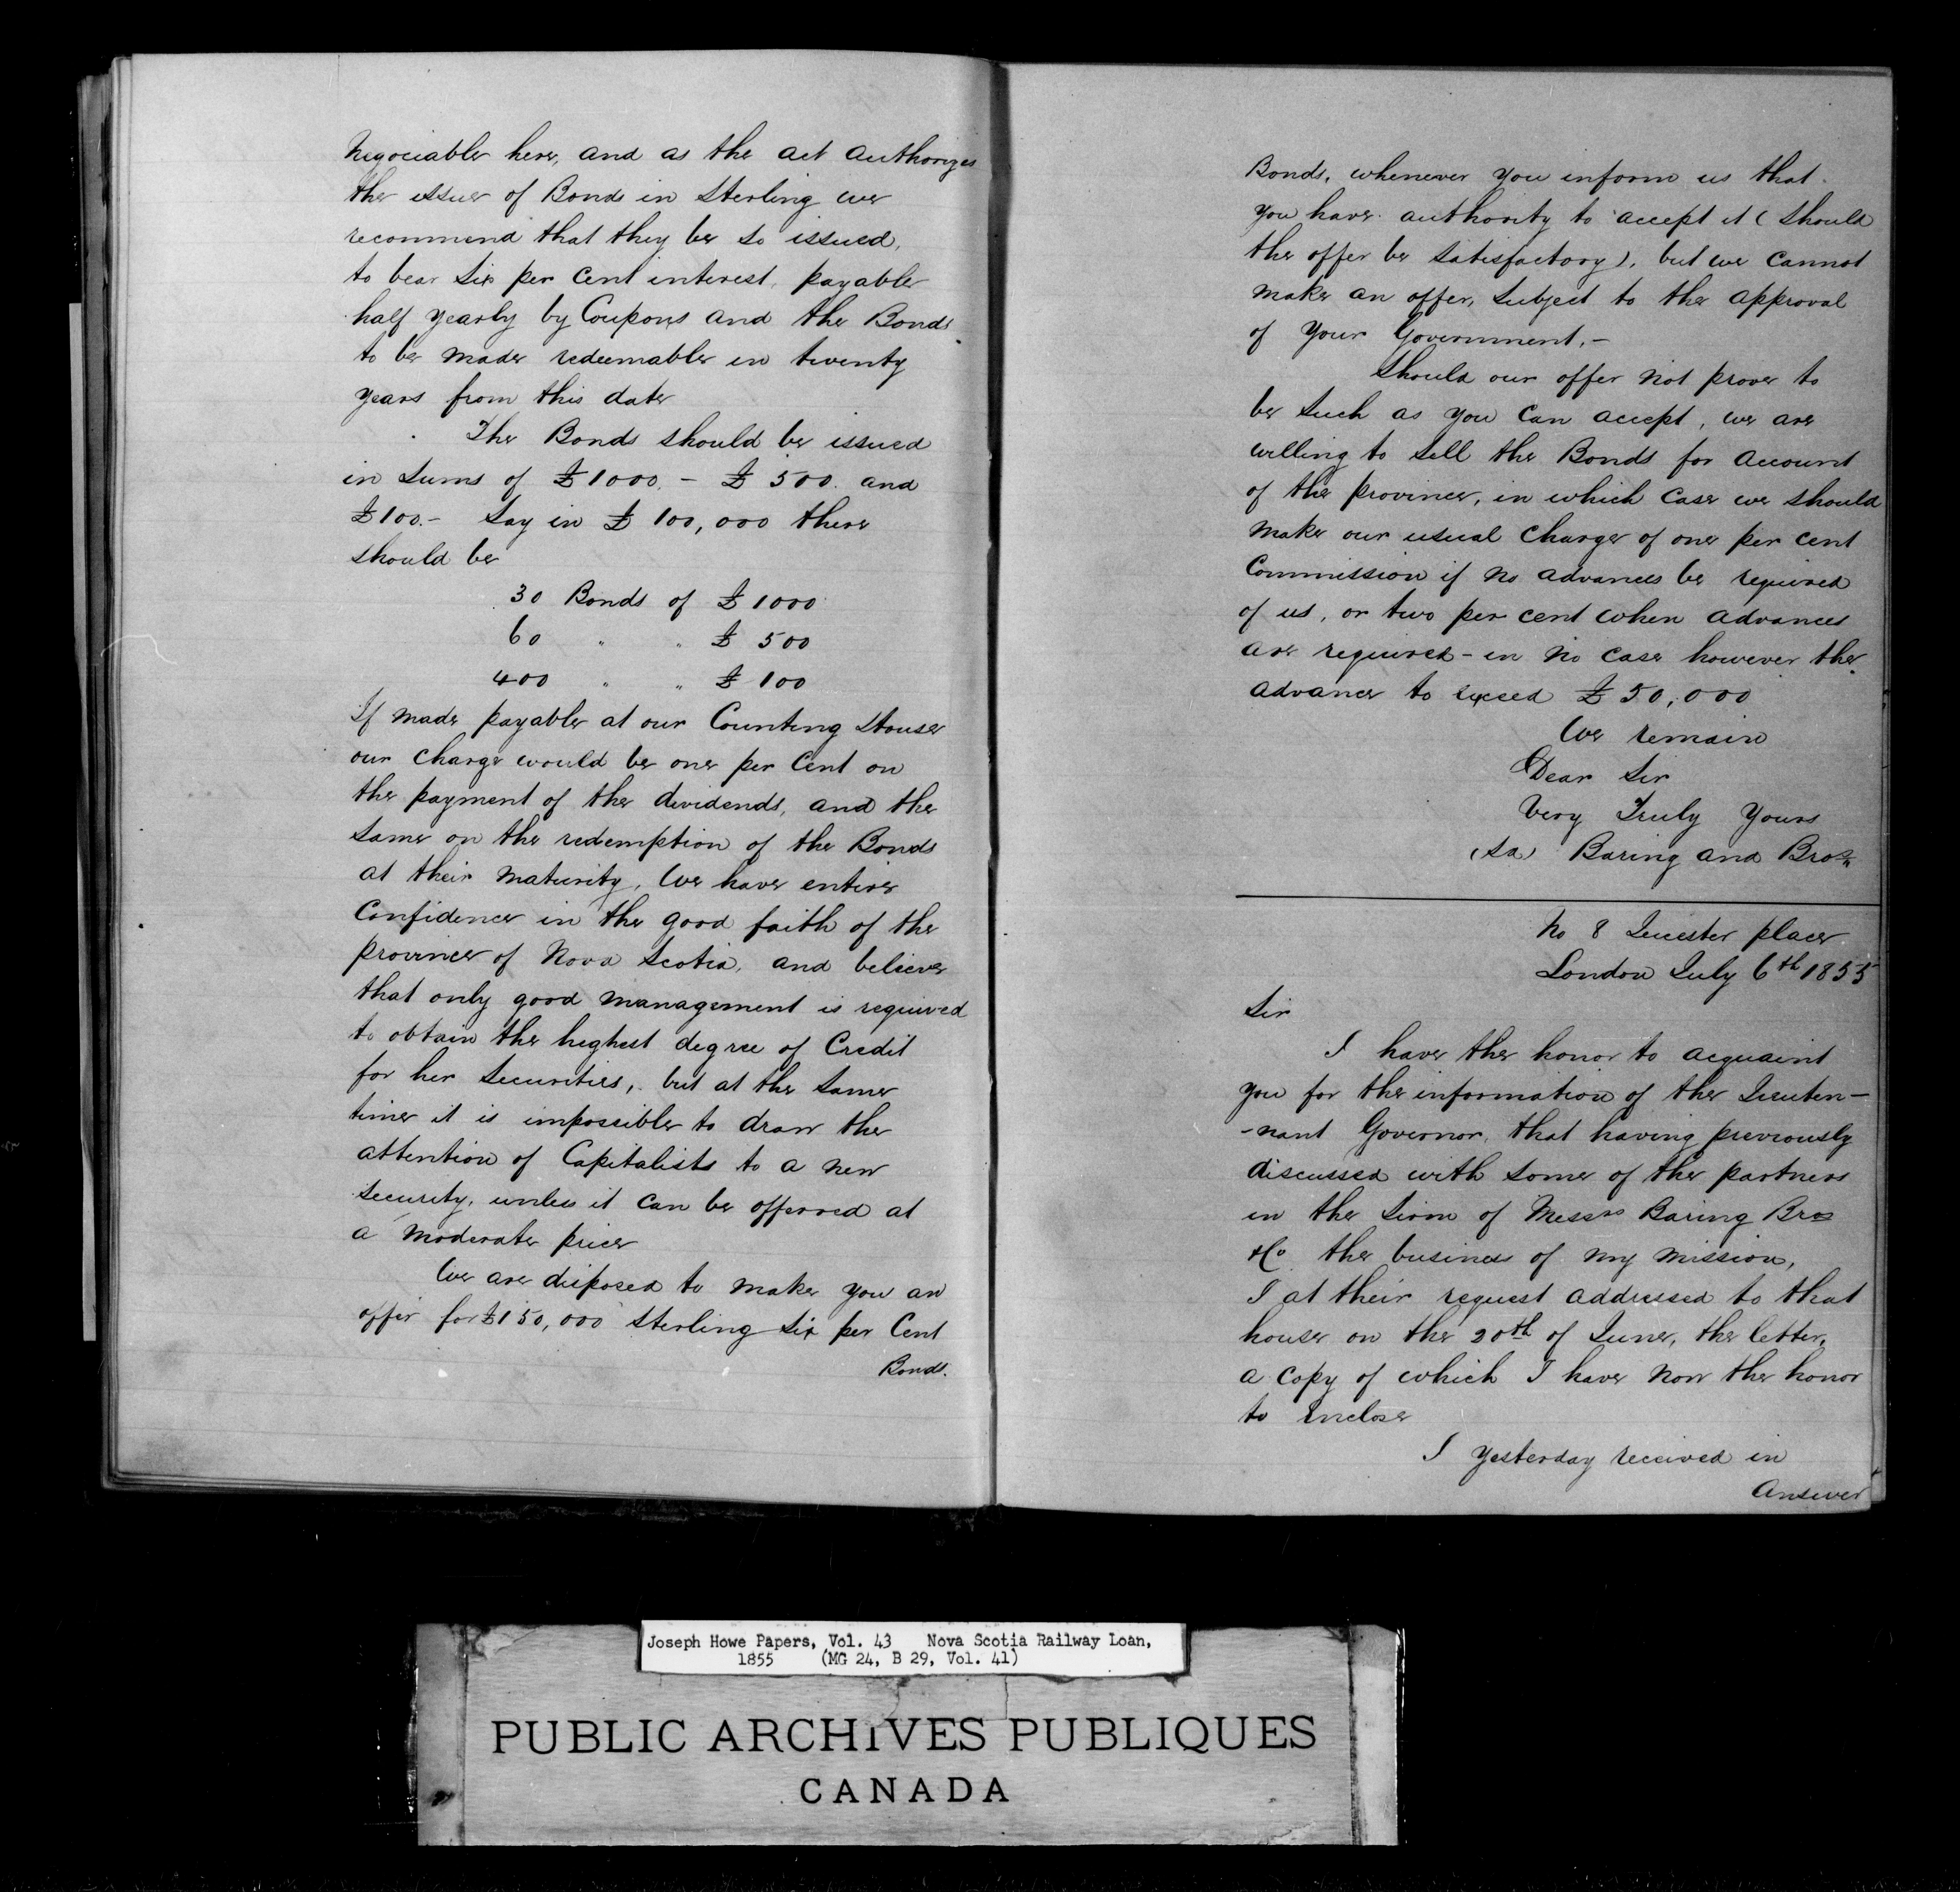 Negociable here, and as the act authorizes
the issue of Bonds in Sterling we
recommend that they be so issued,
to bear Six per cent interest, payable
half yearly by Coupons and the Bonds
to be made redeemable in twenty
years from this date
The Bonds should be issued
in Sums of £1000. - £500. and
£100.- Say in £100,000 there
should be
30 Bonds of £1000
60 " " £500
400 " " £100
If made payable at our Counting House
our charge would be one per Cent on
the payment of the dividends, and the
same on the redemption of the Bonds
at their maturity, We have entire
Confidence in the good faith of the
province of Nova Scotia, and believe
that only good management is required
to obtain the highest degree of Credit
for her Securities, but at the same
time it is impossible to draw the
attention of Capitalists to a new
Security, unless it can be offerred at
a moderate price
We are disposed to make you an
offer for £150,000 Sterling Six per Cent
Bonds.
Bonds, whenever you inform us that
you have authority to accept it (should
the offer be satisfactory), but we cannot
make an offer, subject to the approval
of your Government.-
Should our offer not prove to
be such as you can accept, we are
willing to sell the Bonds for account
of the province, in which case we should
make our usual charge of one per cent
Commission if no advances be required
of us, or two per cent when advances
are required - in no case however the
advance to exceed £50,000
We remain
Dear Sir
Very Truly Yours
(Sd) Baring and Bros.
No 8 Leicester place
London July 6th 1855
Sir
I have the honor to acquaint
you for the information of the Lieuten-
-nant Governor, that having previously
discussed with some of the partners
in the Firm of Messrs Baring Bros
& Co. the business of my mission,
I at their request addressed to that
house on the 20th of June, the letter,
a copy of which I have now the honor
to enclose
I yesterday received in
Answer
Joseph Howe Papers, Vol. 43 Nova Scotia Railway Loan,
1855 (MG 24, B 29, Vol. 41)
PUBLIC ARCHIVES PUBLIQUES
CANADA